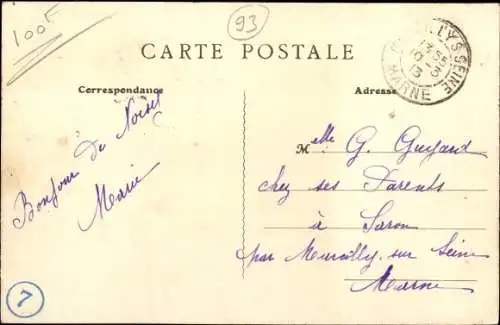 100F
93
CARTE POSTALE
Correspondance
Adresse
SEINE
MARNE
Bonjour de Noisiel
Marie
Mlle G. Guyard
chez ses Parents
à Saron
par Marcilly sur Seine
Marne
7